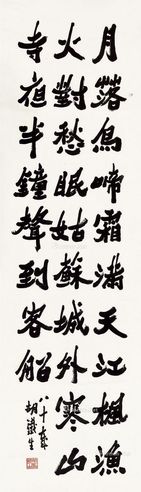 月落烏啼霜滿天江楓漁
火對愁眠姑蘇城外寒山
寺夜半鐘聲到客船
八十叟
胡鐵生